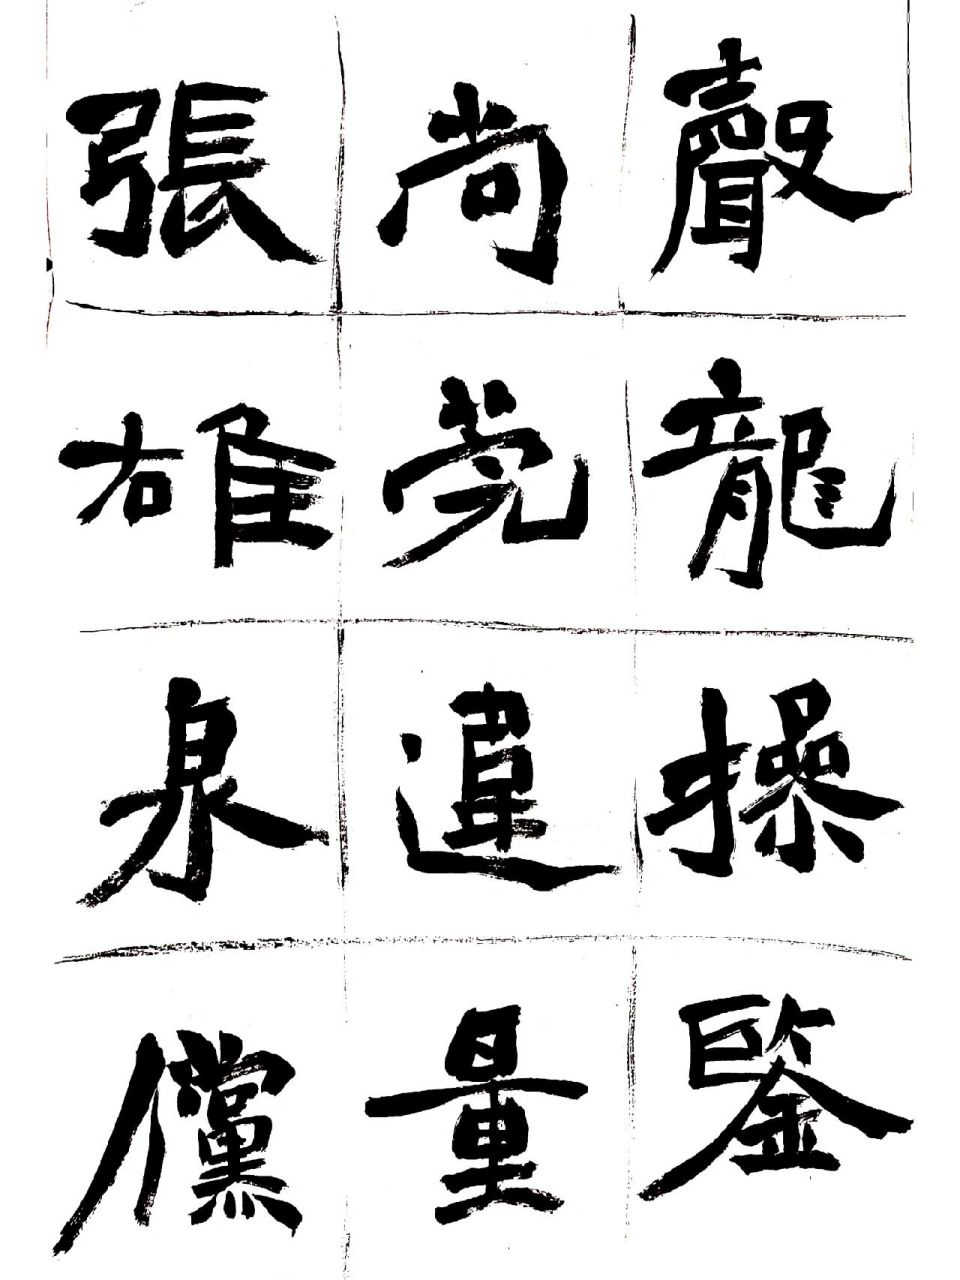 聲龍操鑒
尚党違量
張雄泉儻